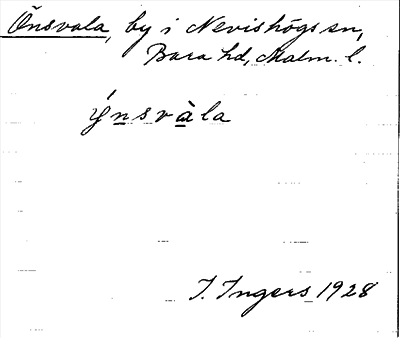 Önsvala, by i Nevishögs sn,
Bara hd, Malm. l.
ýnsvàla
I. Ingers 1928